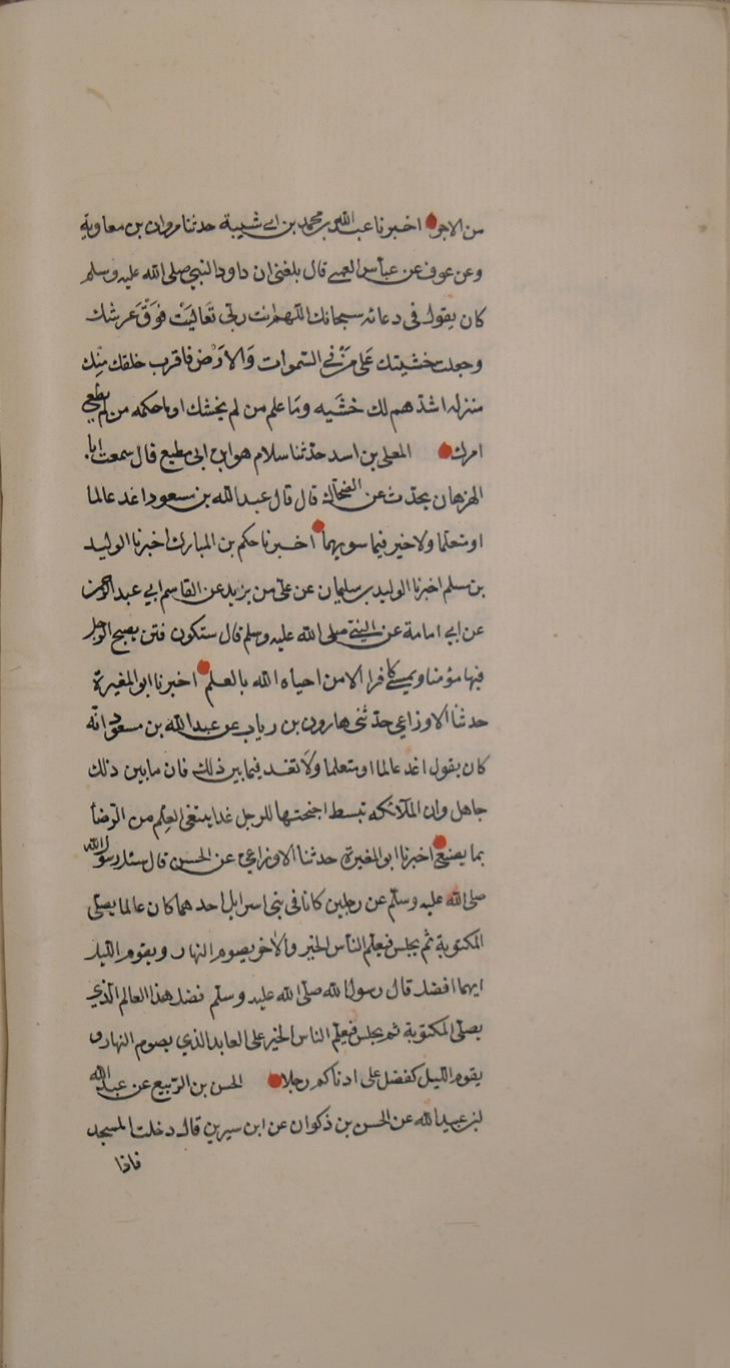 من الاجر اخبرنا عبد الله بن محمد بن ابي شيبة حدثنا مروان بن معاوية
وعن عوف عن عباس العمى قال بلغنى ان داود النبي صلى الله عليه وسلم
كان يقول فى دعائه سبحانك اللهم انت ربى تَعاليَتْ فوَقَ عَرشك
وجعلت خشيتك عَلى مَنْ فى السموات وَالاَرْض فاقرب خلقك منِك
منزله اشدهم لك خَشَيه وما علم من لم يخشك او ما حكمه من لم يطعى
امرك المعلى بن اسد حدثنا سلام هو ابن ابى مطيع قال سمعت ابا
الهزهان يحدث عن الضحاك قال قال عبد الله بن مسعود اغد عالما
او متعلما ولا خير فيما سويهما اخبرنا حكم بن المبارك اخبرنا الوليد
بن سلم اخبرنا الوليد بن سليمان عن على من يزيد عن القاسم ابي عبد الرحمن
عن ابي امامة عن النبى صلى الله عليه وسلم قال ستكون فتن يصبح الرجل
فيها مؤمنا ويمسى كافرا الا من احياه الله بالعلم اخبرنا ابو المغيرة
حدثنا الاوزاعي حدثنى هارون بن رياب عن عبد الله بن مسعود انه
كان يقول اغد عالما او متعلما ولا تغد فيما بين ذلك فان ما بين ذلك
جاهل وان الملآئكه تبسط اجنحتها للرجل غدا يبتغى العِلم من الرضأ
بما يصنع اخبرنا ابو المغيرة حدثنا الاوزاعي عن الحسن قال سئل رسول الله
صلى الله عليه وسلم عن رجلين كانا فى بنى اسرايل احدهما كان عالما يصلى
المكتوبة ثم يجلس فيعلم الناس الخير والاخر يصوم النهار ويقوم الليل
ايهما افضل قال رسول الله صلى الله عليه وسلم فضل هذا العالم الذي
يصلى المكتوبة ثم يجلس فيعلم الناس الخير على العابد الذي يصوم النهار و
يقوم الليل كفضل على ادناكم رجلا الحسن بن الربيع عن عبد الله
بن عبيد الله عن الحسن بن ذكوان عن ابن سيرين قال دخلت المسجد
فاذا